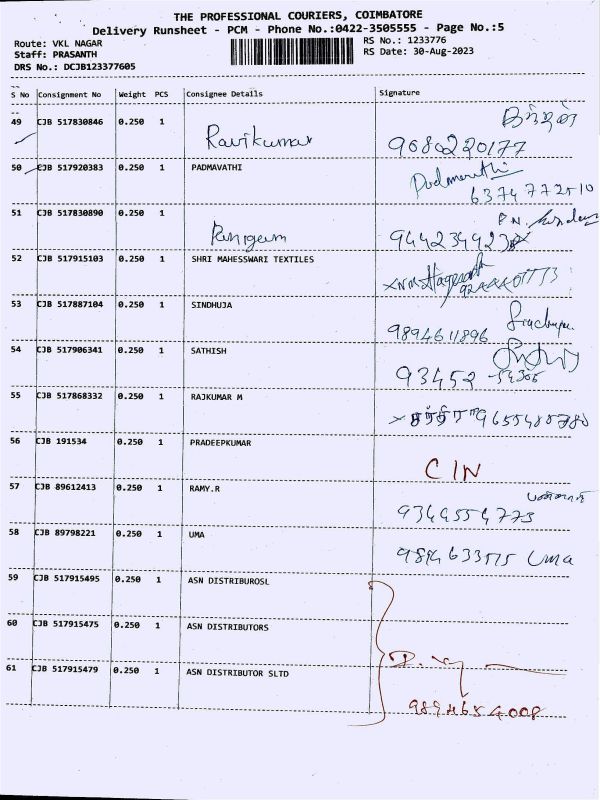 THE PROFESSIONAL COURIERS, COIMBATORE
Delivery Runsheet - PCM - Phone No.:0422-3505555 - Page No.:5
Route: VKL NAGAR
RS No.: 1233776
Staff: PRASANTH
RS Date: 30-Aug-2023
DRS No.: DCJB123377605
S No Consignment No Weight PCS Consignee Details Signature
49 CJB 517830846 0.250 1 Ravikumar 9680220177
50 CJB 517920383 0.250 1 PADMAVATHI 6374772510
51 CJB 517830890 0.250 1
52 CJB 517915103 0.250 1 SHRI MAHESSWARI TEXTILES
53 CJB 517887104 0.250 1 SINDHUJA 9894611896
54 CJB 517906341 0.250 1 SATHISH 93452
55 CJB 517868332 0.250 1 RAJKUMAR M
56 CJB 191534 0.250 1 PRADEEPKUMAR CIN
57 CJB 89612413 0.250 1 RAMY.R
58 CJB 89798221 0.250 1 UMA Uma
59 CJB 517915495 0.250 1 ASN DISTRIBUROSL
60 CJB 517915475 0.250 1 ASN DISTRIBUTORS
61 CJB 517915479 0.250 1 ASN DISTRIBUTOR SLTD
9894654008